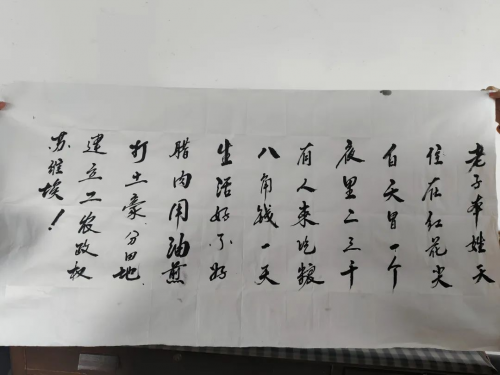 老子本姓天
住在红花尖
白天冒一个
夜里二三千
有人来吃粮
八角钱一天
生活好不好
腊肉用油煎
打土豪.分田地.
建立工农政权
苏维埃！